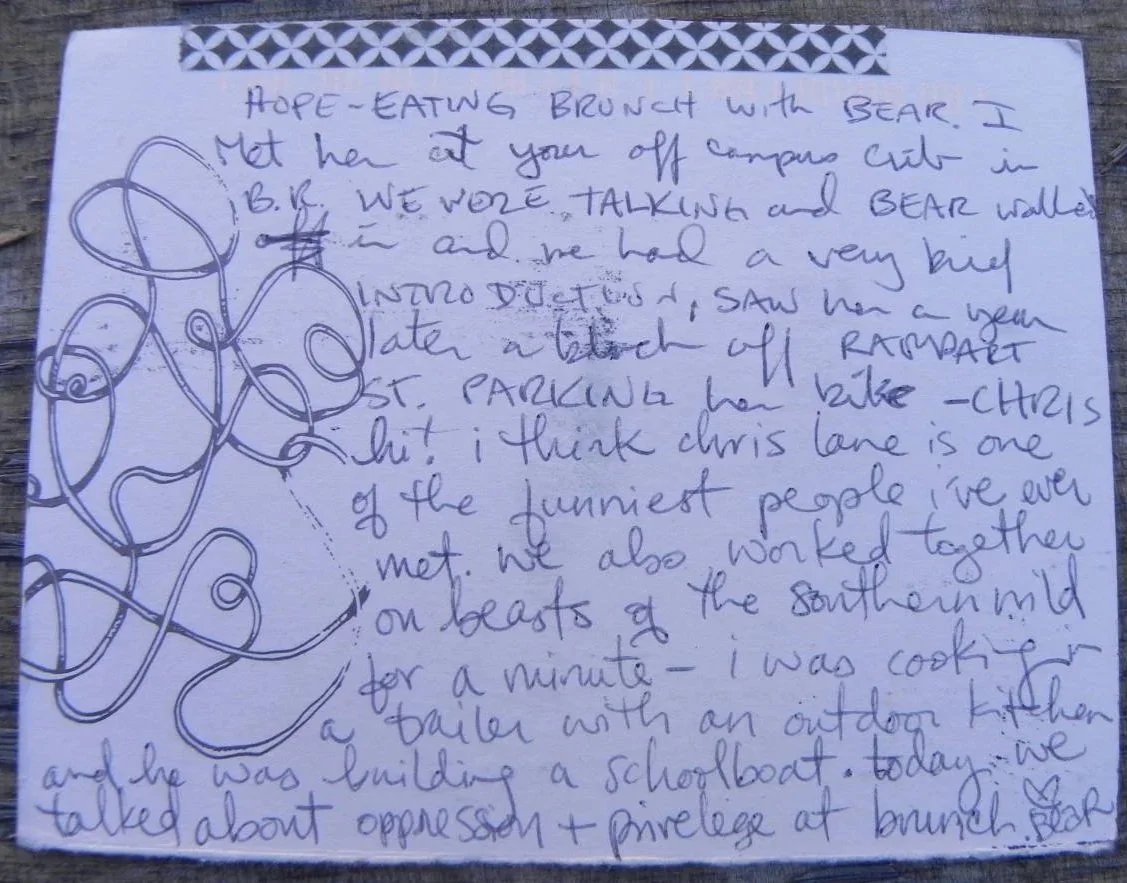 HOPE-EATING BRUNCH with BEAR. I
Met her at your off campus crib in
B.R. WE WERE TALKING and BEAR walked
in and we had a very brief
INTRODUCTION, SAW her a year
later a block off RAMPART
ST. PARKING her bike -CHRIS
hi! i think chris lane is one
of the funniest people i've ever
met. we also worked together
on beasts of the southern wild
for a minute - i was cooking in
a trailer with an outdoor kitchen
and he was building a schoolboat. today we
talked about oppression + privelege at brunch. ♡ BEAR